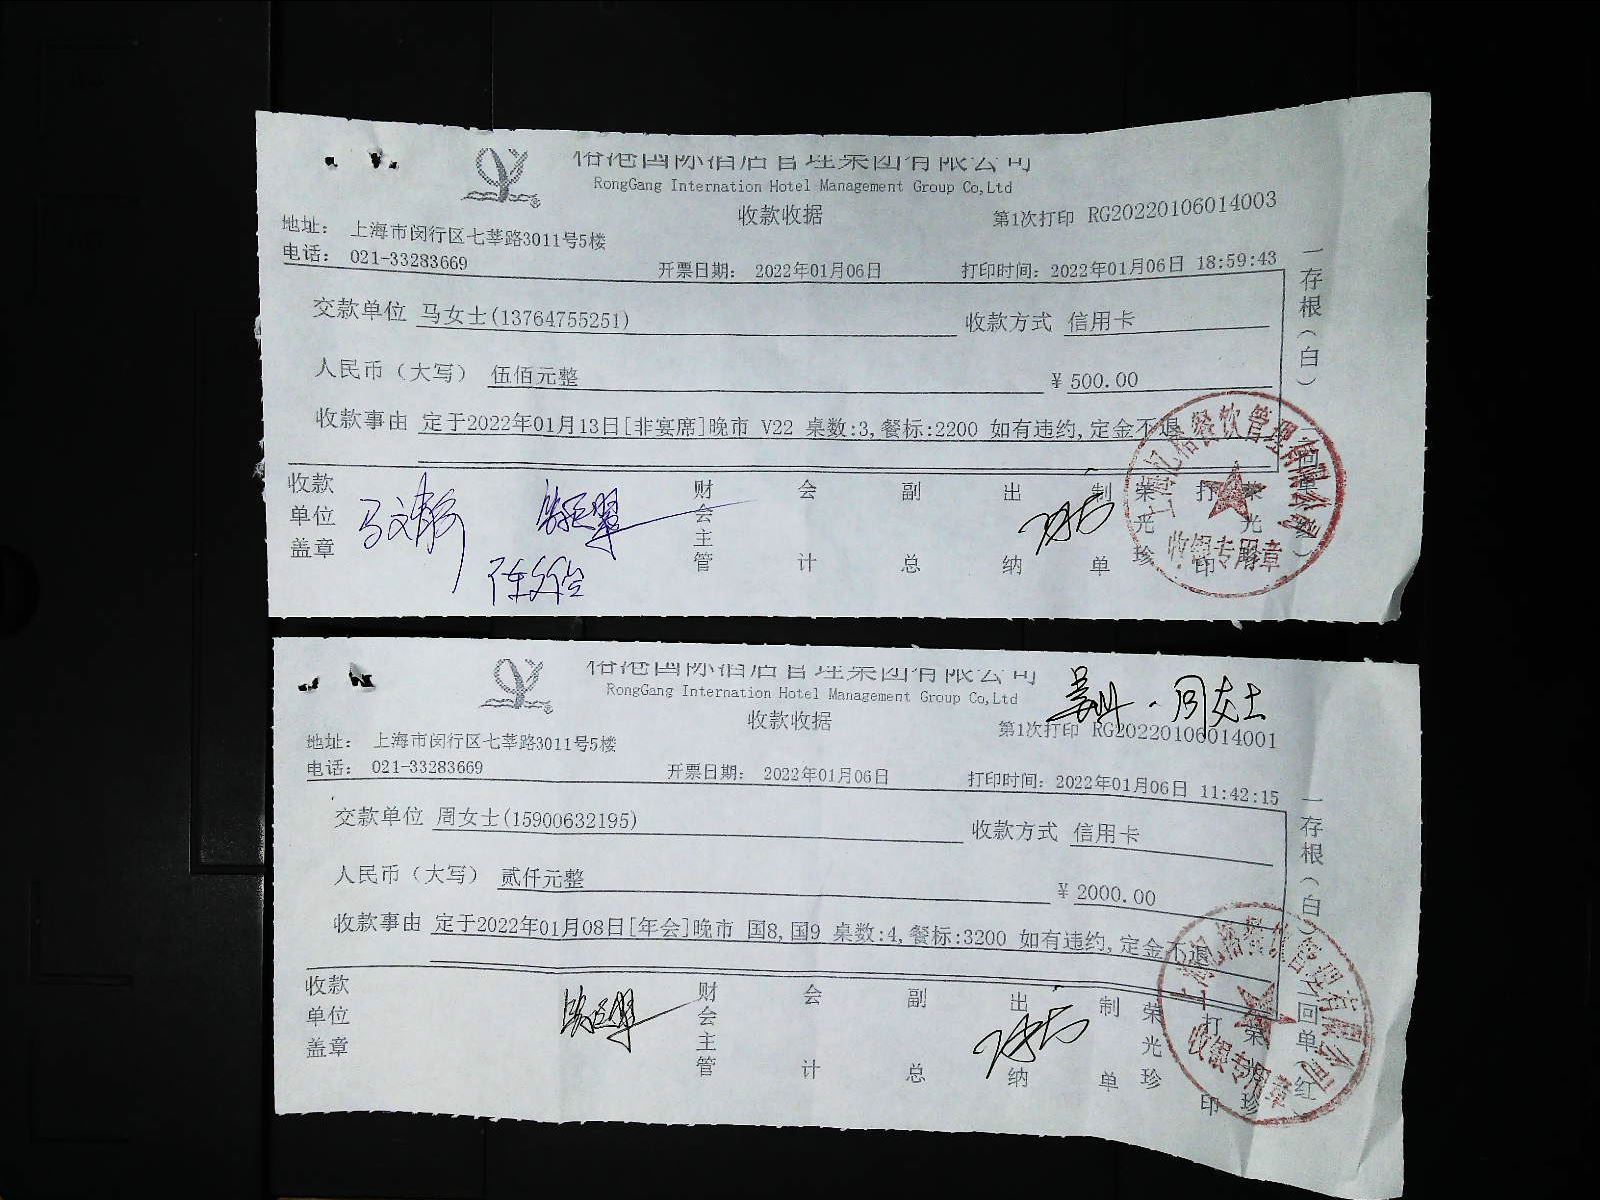 国际酒店管理集团有限公司
RongGang Internation Hotel Management Group Co,Ltd
收款收据
第1次打印 RG20220106014003
地址: 上海市闵行区七莘路3011号5楼
电话: 021-33283669
开票日期: 2022年01月06日
打印时间: 2022年01月06日 18:59:43
交款单位 马女士(13764755251)
收款方式 信用卡
人民币(大写) 伍佰元整
¥ 500.00
收款事由 定于2022年01月13日[非宴席]晚市 V22 桌数:3,餐标:2200 如有违约,定金不退
一存根(白)
收款单位盖章
马文静
财会主管
会计
副总
出纳
制单
荣光珍
打印
收银专用章
国际酒店管理集团有限公司
RongGang Internation Hotel Management Group Co,Ltd
收款收据
周女士
第1次打印 RG20220106014001
地址: 上海市闵行区七莘路3011号5楼
电话: 021-33283669
开票日期: 2022年01月06日
打印时间: 2022年01月06日 11:42:15
交款单位 周女士(15900632195)
收款方式 信用卡
人民币(大写) 贰仟元整
¥ 2000.00
收款事由 定于2022年01月08日[年会]晚市 国8,国9 桌数:4,餐标:3200 如有违约,定金不退
一存根(白)二回单(红)
收款单位盖章
财会主管
会计
副总
出纳
制单
荣光珍
打印
荣光珍
收银专用章